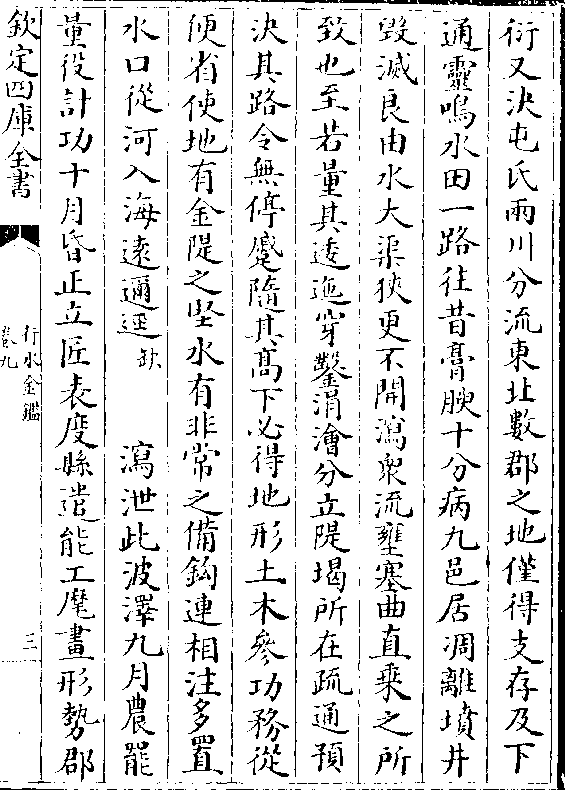 衍又決屯氏兩川分流東北數郡之地僅得支存及下
通靈鳴水田一路往昔膏腴十分病九邑居凋離墳井
毀滅良由水大渠狹更不開瀉衆流壅塞曲直乗之所
致也至若量其逶迤穿鑿涓澮分立隄堨所在疏通預
決其路令無停蹙隨其髙下必得地形土木參功務從
便省使地有金隄之堅水有非常之備鈎連相注多置
水口從河入海逺邇逕缺　瀉泄此波澤九月農罷
量役計功十月昏正立匠表度縣遣能工麾畫形勢郡
欽定四庫全書
行水金鑑
卷九
三